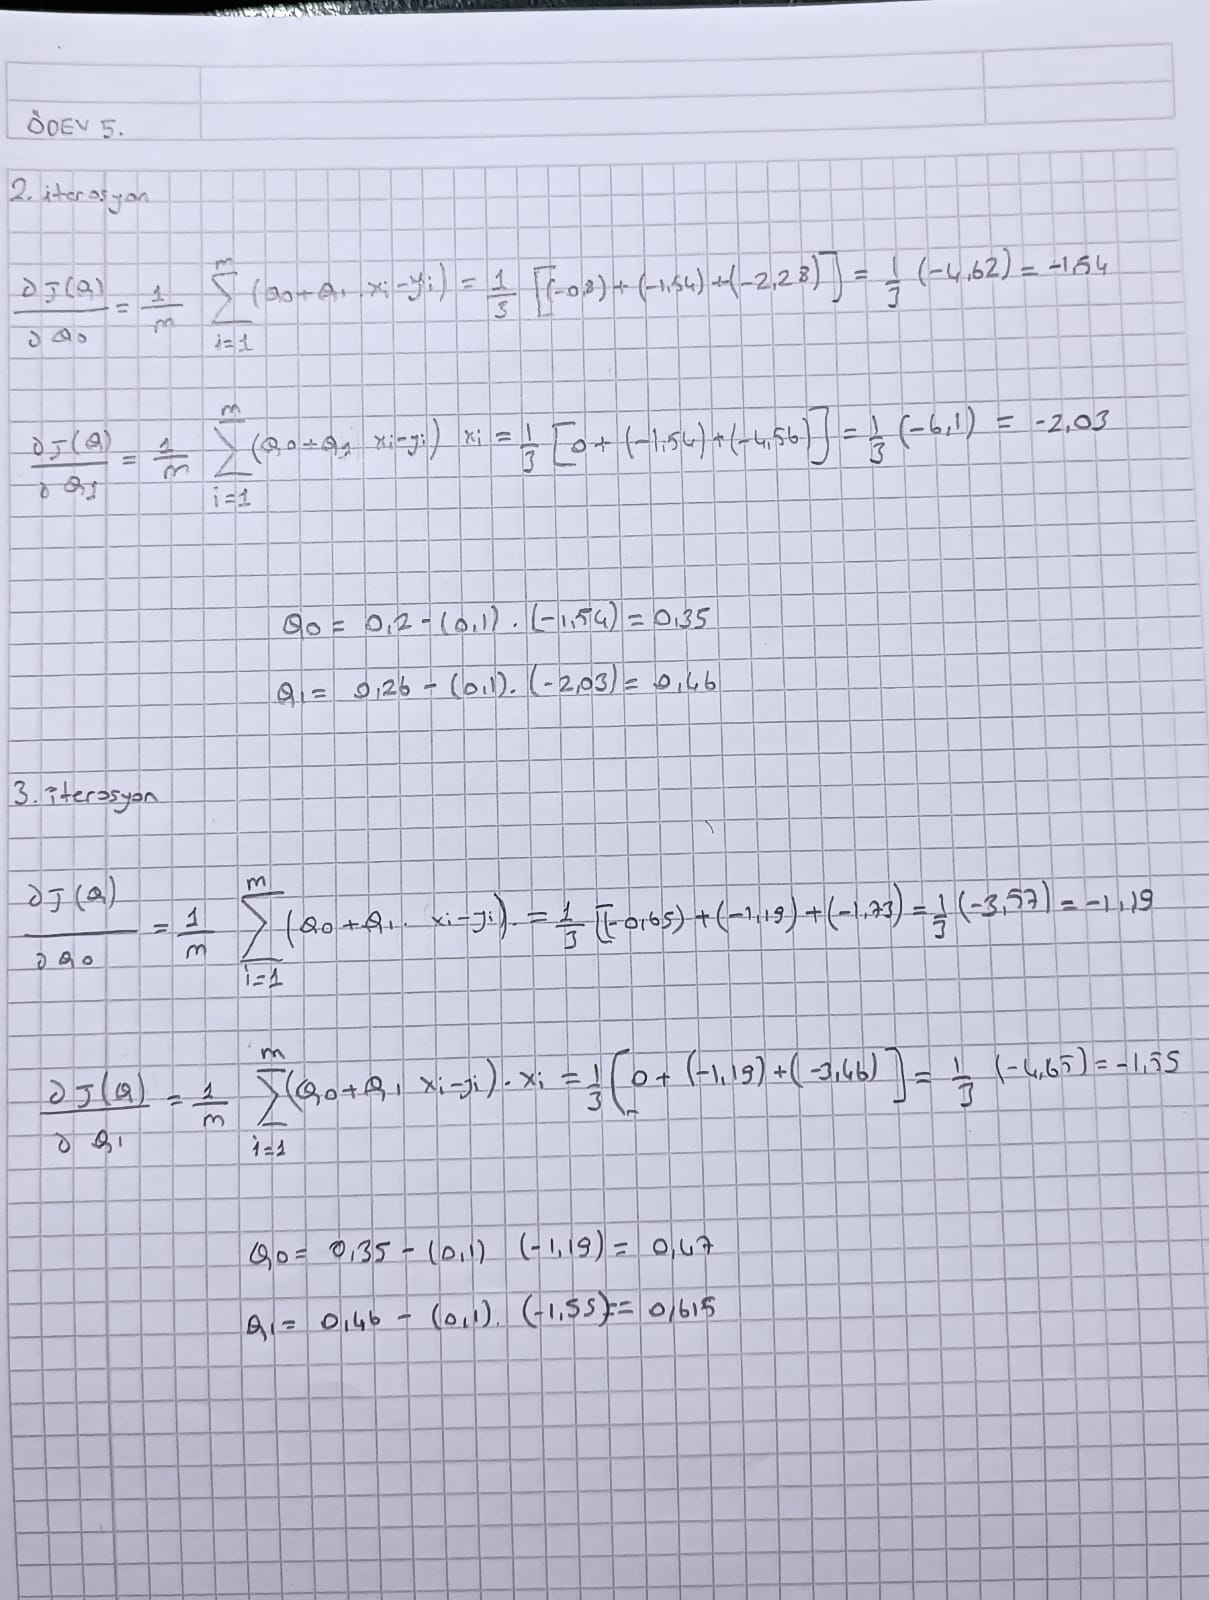 ÖDEV 5.
2. iterasyon
∂J(Q)/∂Q0 = 1/m ∑(i=1, m) (Q0+Q1.xi-yi) = 1/3 [(-0,8)+(-1,54)+(-2,28)] = 1/3 (-4,62) = -1,54
∂J(Q)/∂Q1 = 1/m ∑(i=1, m) (Q0+Q1 xi-yi) xi = 1/3 [0+(-1,54)+(-4,56)] = 1/3 (-6,1) = -2,03
Q0 = 0,2-(0,1).(-1,54) = 0,35
Q1 = 0,26-(0,1).(-2,03) = 0,46
3. iterasyon
∂J(Q)/∂Q0 = 1/m ∑(i=1, m) (Q0+Q1. xi-yi). = 1/3 [(-0,65)+(-1,19)+(-1,73) = 1/3 (-3,57) = -1,19
∂J(Q)/∂Q1 = 1/m ∑(i=1, m) (Q0+Q1 xi-yi).xi = 1/3 [0+(-1,19)+(-3,46)] = 1/3 (-4,65) = -1,55
Q0 = 0,35-(0,1) (-1,19) = 0,47
Q1 = 0,46-(0,1). (-1,55) = 0,615